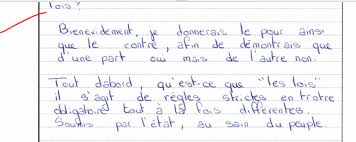 lois ?
Bienevidement, je donnerais le pour ainsi
que le contre, afin de démontrais que
d'une part oui mais de l'autre non.
Tout dabord, qu'est-ce que "les lois"
il s'agit de règles strictes en trotre
obligatoire tout à la fois différentes.
Soumis par l'état, au sain du peuple.